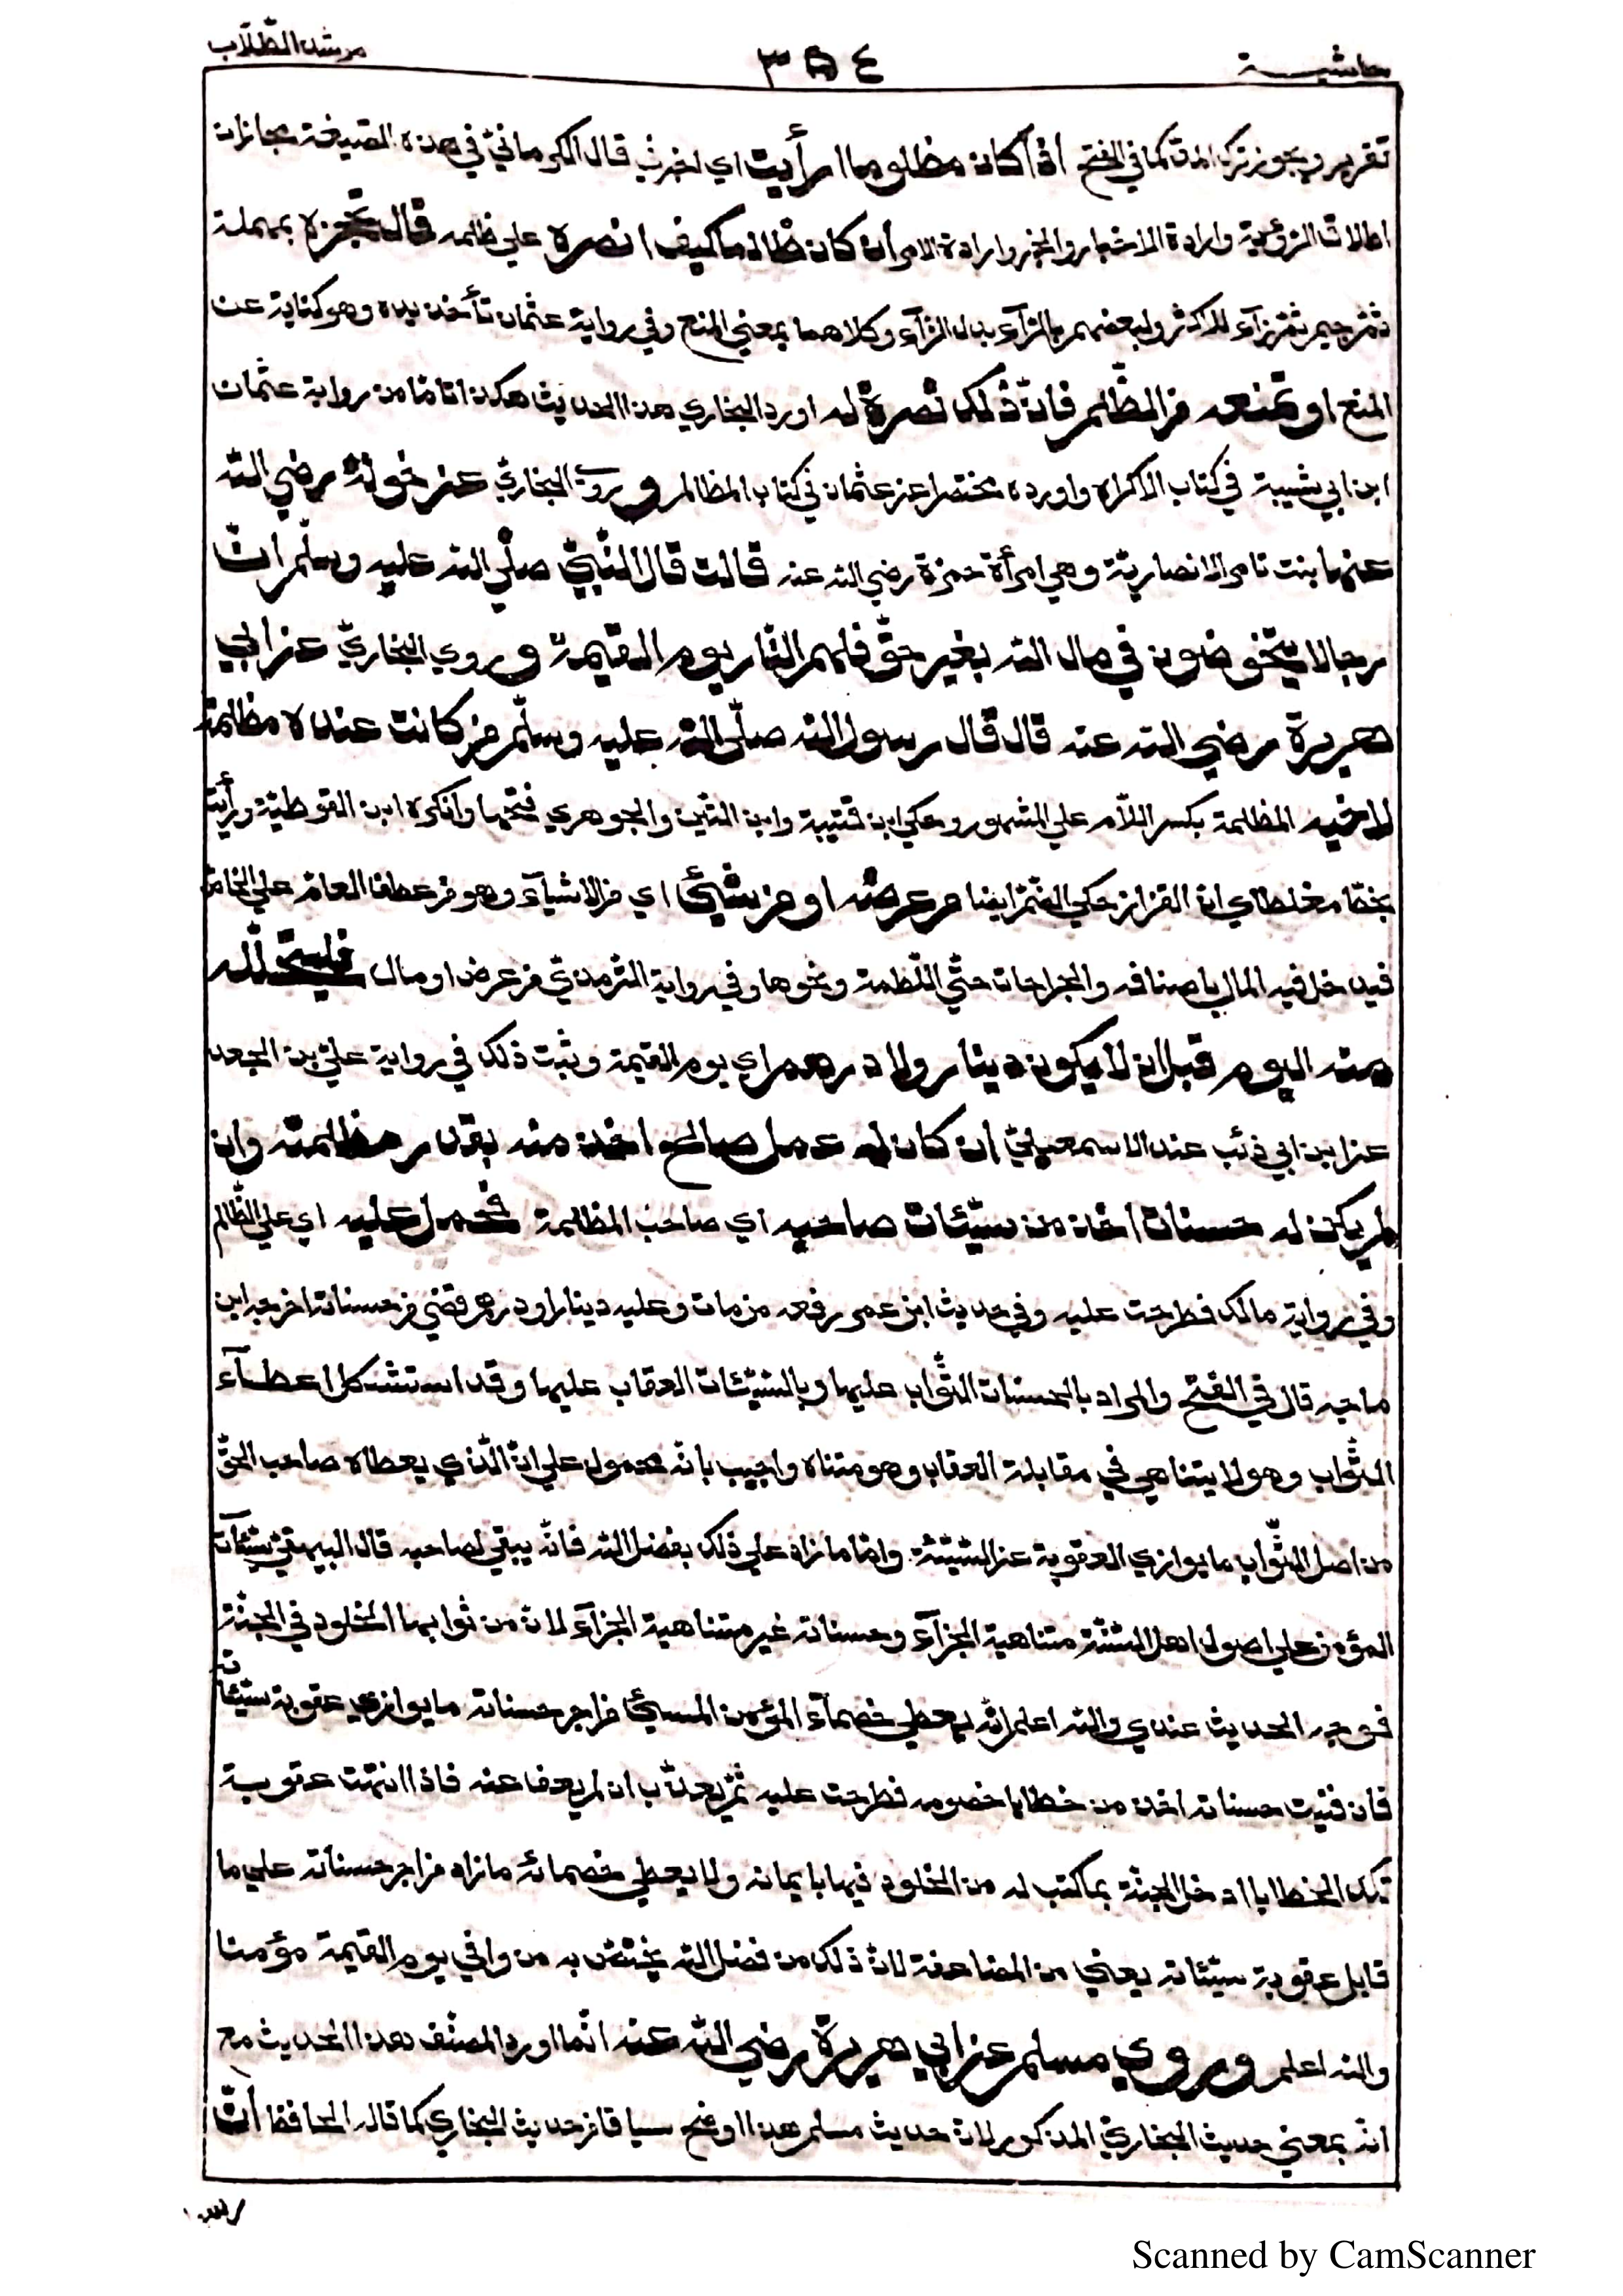 حاشيـــة ٣٥٤ مرشد الطّلّاب
تقرير ويجوز ترك المدّ كما في الفتح اذا كان مظلوما ارأيت اي اخبرني قال الكرمانيّ في هذه الصّيغة مجازان
اطلاق الرّؤية وارادة الاخبار والخبر وارادة الامر ان كان ظالما كيف انصره علي ظلمه قال تحجزه بمهملة
ثمّ جيم ثمّ زآء للاكثر ولبعضهم بالرّآء بدل الزّآء وكلاهما بمعني المنع وفي رواية عثمان تأخذ يده وهو كناية عن
المنع او تمنعه من الظّلم فانّ ذلك نصرة له اورد البخاري هذا الحديث هكذا تامّا من رواية عثمان
ابن ابي شيبة في كتاب الاكراه واورده مختصرا عن عثمان في كتاب المظالم و روي البخاريّ عن خولة رضي الله
عنها بنت تامر الانصاريّة وهي امرأة حمزة رضي الله عنه قالت قال النّبيّ صلّي الله عليه وسلّم انّ
رجالا يتخوضون في مال الله بغير حقّ فلهم النّار يوم القيمة و روي البخاريّ عن ابي
هريرة رضي الله عنه قال قال رسول الله صلّي الله عليه وسلّم من كانت عنده مظلمة
لاخيه المظلمة بكسر اللّام علي المشهور وحكي ابن قتيبة وابن التّين والجوهري فتحها وانكره ابن القوطيّة ورأيت
بخطّ مغلطاي انّ القزاز حكي الضّمّ ايضا من عرضه او من شيئ اي من الاشيآء وهو من عطف العامّ علي الخاصّ
فيدخل فيه المال باصنافه والجراحات حتّي اللّطمة ونحوها وفي رواية التّرمذيّ من عرض او مال فليتحلّله
منه اليوم قبل ان لا يكون دينار ولا درهم اي يوم القيمة وثبت ذلك في رواية عليّ بن الجعد
عن ابن ابي ذئب عند الاسمعيليّ ان كان له عمل صالح اخذ منه بقدر مظلمته وان
لم يكن له حسنات اخذ من سيّئات صاحبه اي صاحب المظلمة فحمل عليه اي علي الظّالم
وفي رواية مالك فطرحت عليه وفي حديث ابن عمر رفعه من مات وعليه دينار او درهم قضي من حسناته اخرجه ابن
ماجه قال في الفتح والمراد بالحسنات الثّواب عليها وبالسّيّئات العقاب عليها وقد استشكل اعطآء
الثّواب وهو لا يتناهي في مقابلة العقاب وهو متناه واجيب بانّه محمول علي انّ الّذي يعطاه صاحب الحقّ
من اصل الثّواب ما يوازي العقوبة عن السّيّئة وامّا ما زاد علي ذلك بفضل الله فانّه يبقي لصاحبه قال البيهقيّ سيّئآت
المؤمن علي اصول اهل السّنّة متناهية الجزآء وحسناته غير متناهية الجزآء لانّ من ثوابها الخلود في الجنّة
فوجه الحديث عندي والله اعلم انّه يعطي خصمآء المؤمن المسيئ من اجر حسناته ما يوازي عقوبة سيّئاته
فان فنيت حسناته اخذ من خطايا خصومه فطرحت عليه ثمّ يعذّب ان لم يعف عنه فاذا انتهت عقوبة
تلك الخطايا ادخل الجنّة بما كتب له من الخلود فيها بايمانه ولا يعطي خصمائه ما زاد من اجر حسناته علي ما
قابل عقوبة سيّئاته يعني من المضاعفة لانّ ذلك من فضل الله يختصّ به من وافي يوم القيمة مؤمنا
والله اعلم و روي مسلم عن ابي هريرة رضي الله عنه انّما اورد المصنّف هذا الحديث مع
انّه بمعني حديث البخاريّ المذكور لانّ حديث مسلم هذا اوضح سياقا من حديث البخاري كما قاله الحافظ انّ
Scanned by CamScanner